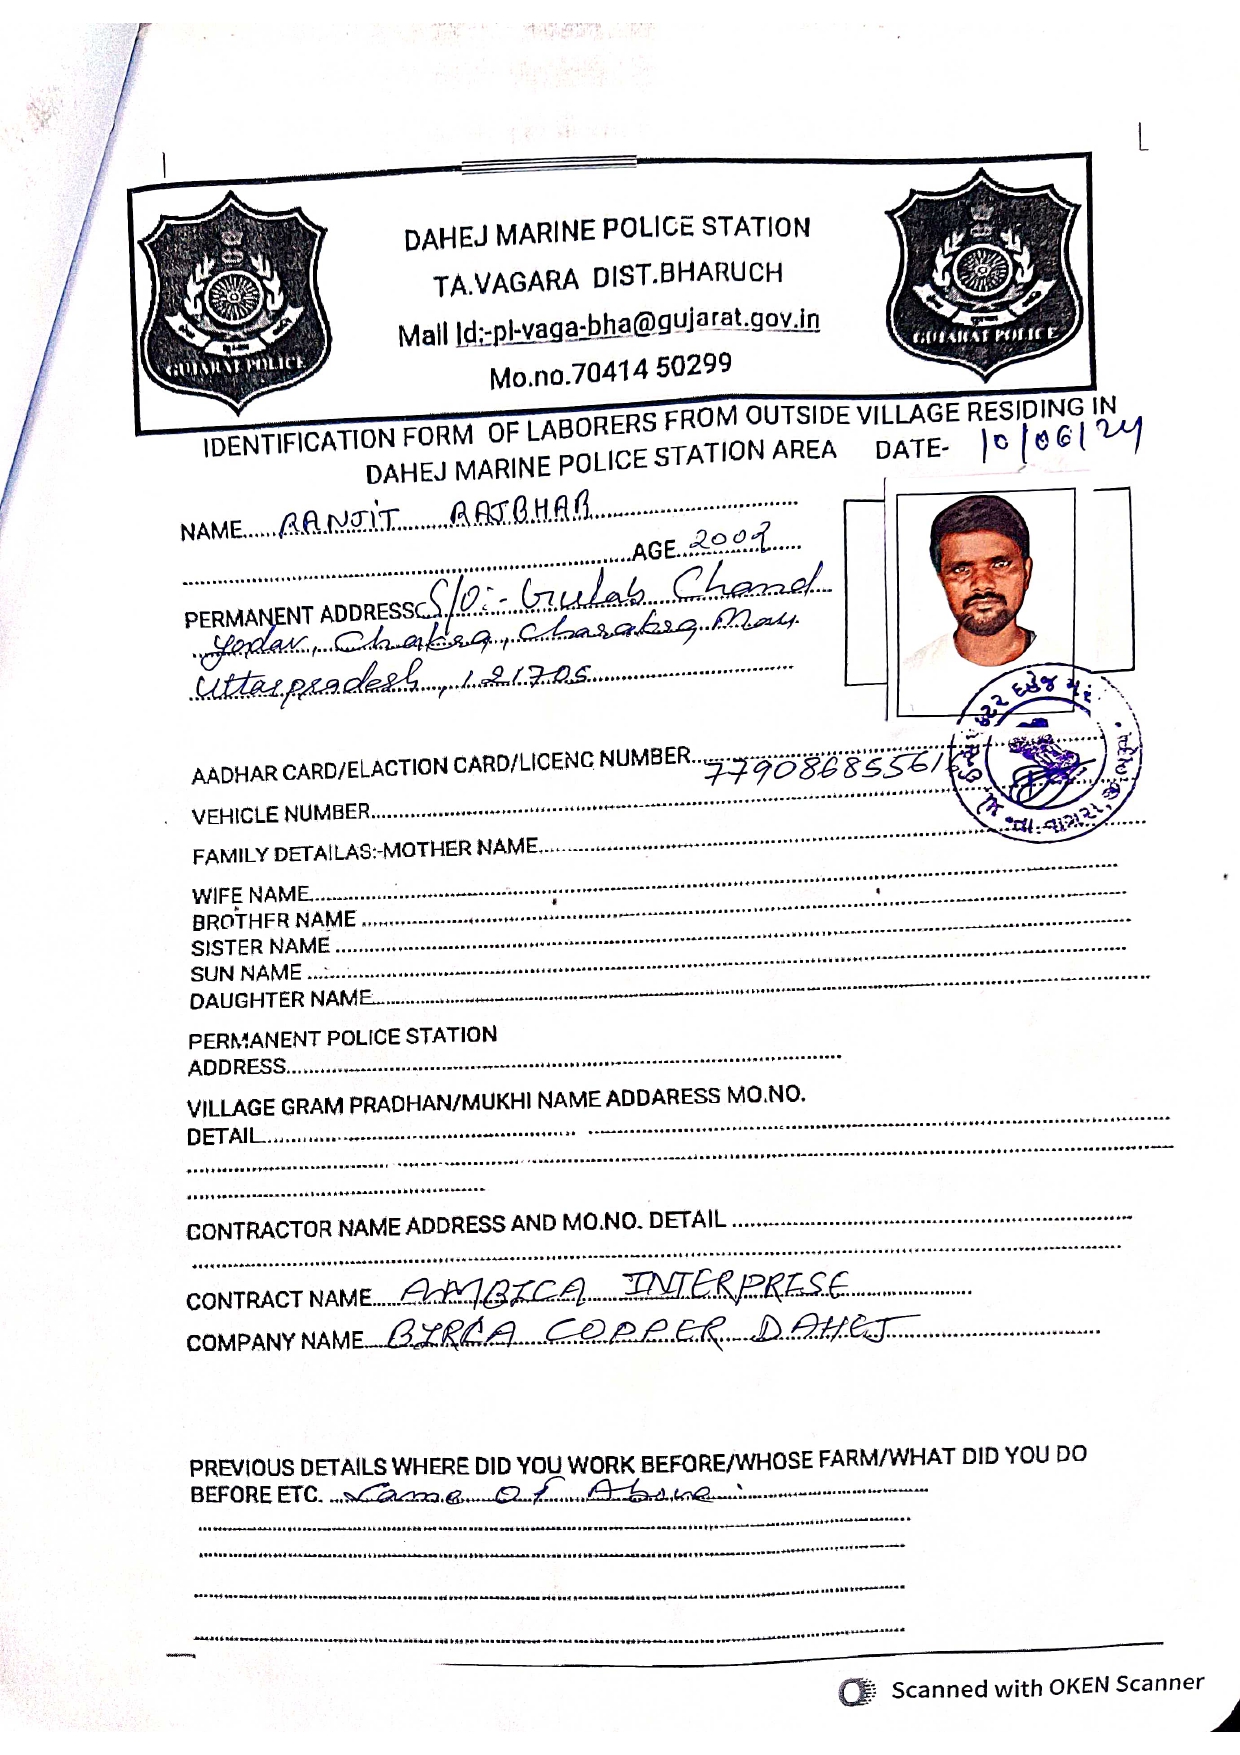 DAHEJ MARINE POLICE STATION
TA.VAGARA DIST.BHARUCH
Mail Id:-pl-vaga-bha@gujarat.gov.in
Mo.no.70414 50299
GUJARAT POLICE
GUJARAT POLICE
IDENTIFICATION FORM OF LABORERS FROM OUTSIDE VILLAGE RESIDING IN
DAHEJ MARINE POLICE STATION AREA DATE- 10/06/24
NAME..... RANJIT RAJBHAR
AGE 2002
PERMANENT ADDRESS S/O:- Gulab Chand
Yadav, Mau
Uttarpradesh, 121705
AADHAR CARD/ELACTION CARD/LICENC NUMBER.. 779086855616
VEHICLE NUMBER
FAMILY DETAILAS:-MOTHER NAME
WIFE NAME
BROTHER NAME
SISTER NAME
SUN NAME
DAUGHTER NAME
PERMANENT POLICE STATION
ADDRESS
VILLAGE GRAM PRADHAN/MUKHI NAME ADDARESS MO.NO.
DETAIL
CONTRACTOR NAME ADDRESS AND MO.NO. DETAIL
CONTRACT NAME AMBICA INTERPRISE
COMPANY NAME BIRLA COPPER DAHEJ
PREVIOUS DETAILS WHERE DID YOU WORK BEFORE/WHOSE FARM/WHAT DID YOU DO
BEFORE ETC. Of Above
Scanned with OKEN Scanner